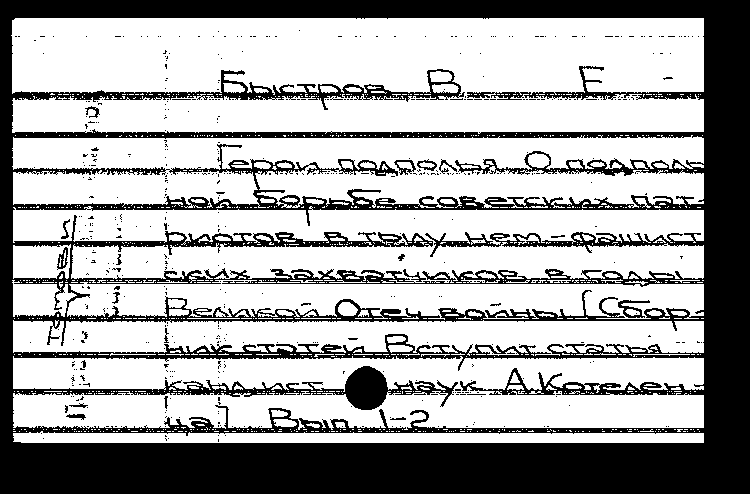 Быстров В Е
Герои подполья О подполь
ной борьбе советских пат-
риотов в тылу нем-фашист
ских захватчиков в годы
Великой Отеч войны [Сбор-
ник статей Вступит статья
канд ист наук А. Котелен-
ца] Вып. 1-2